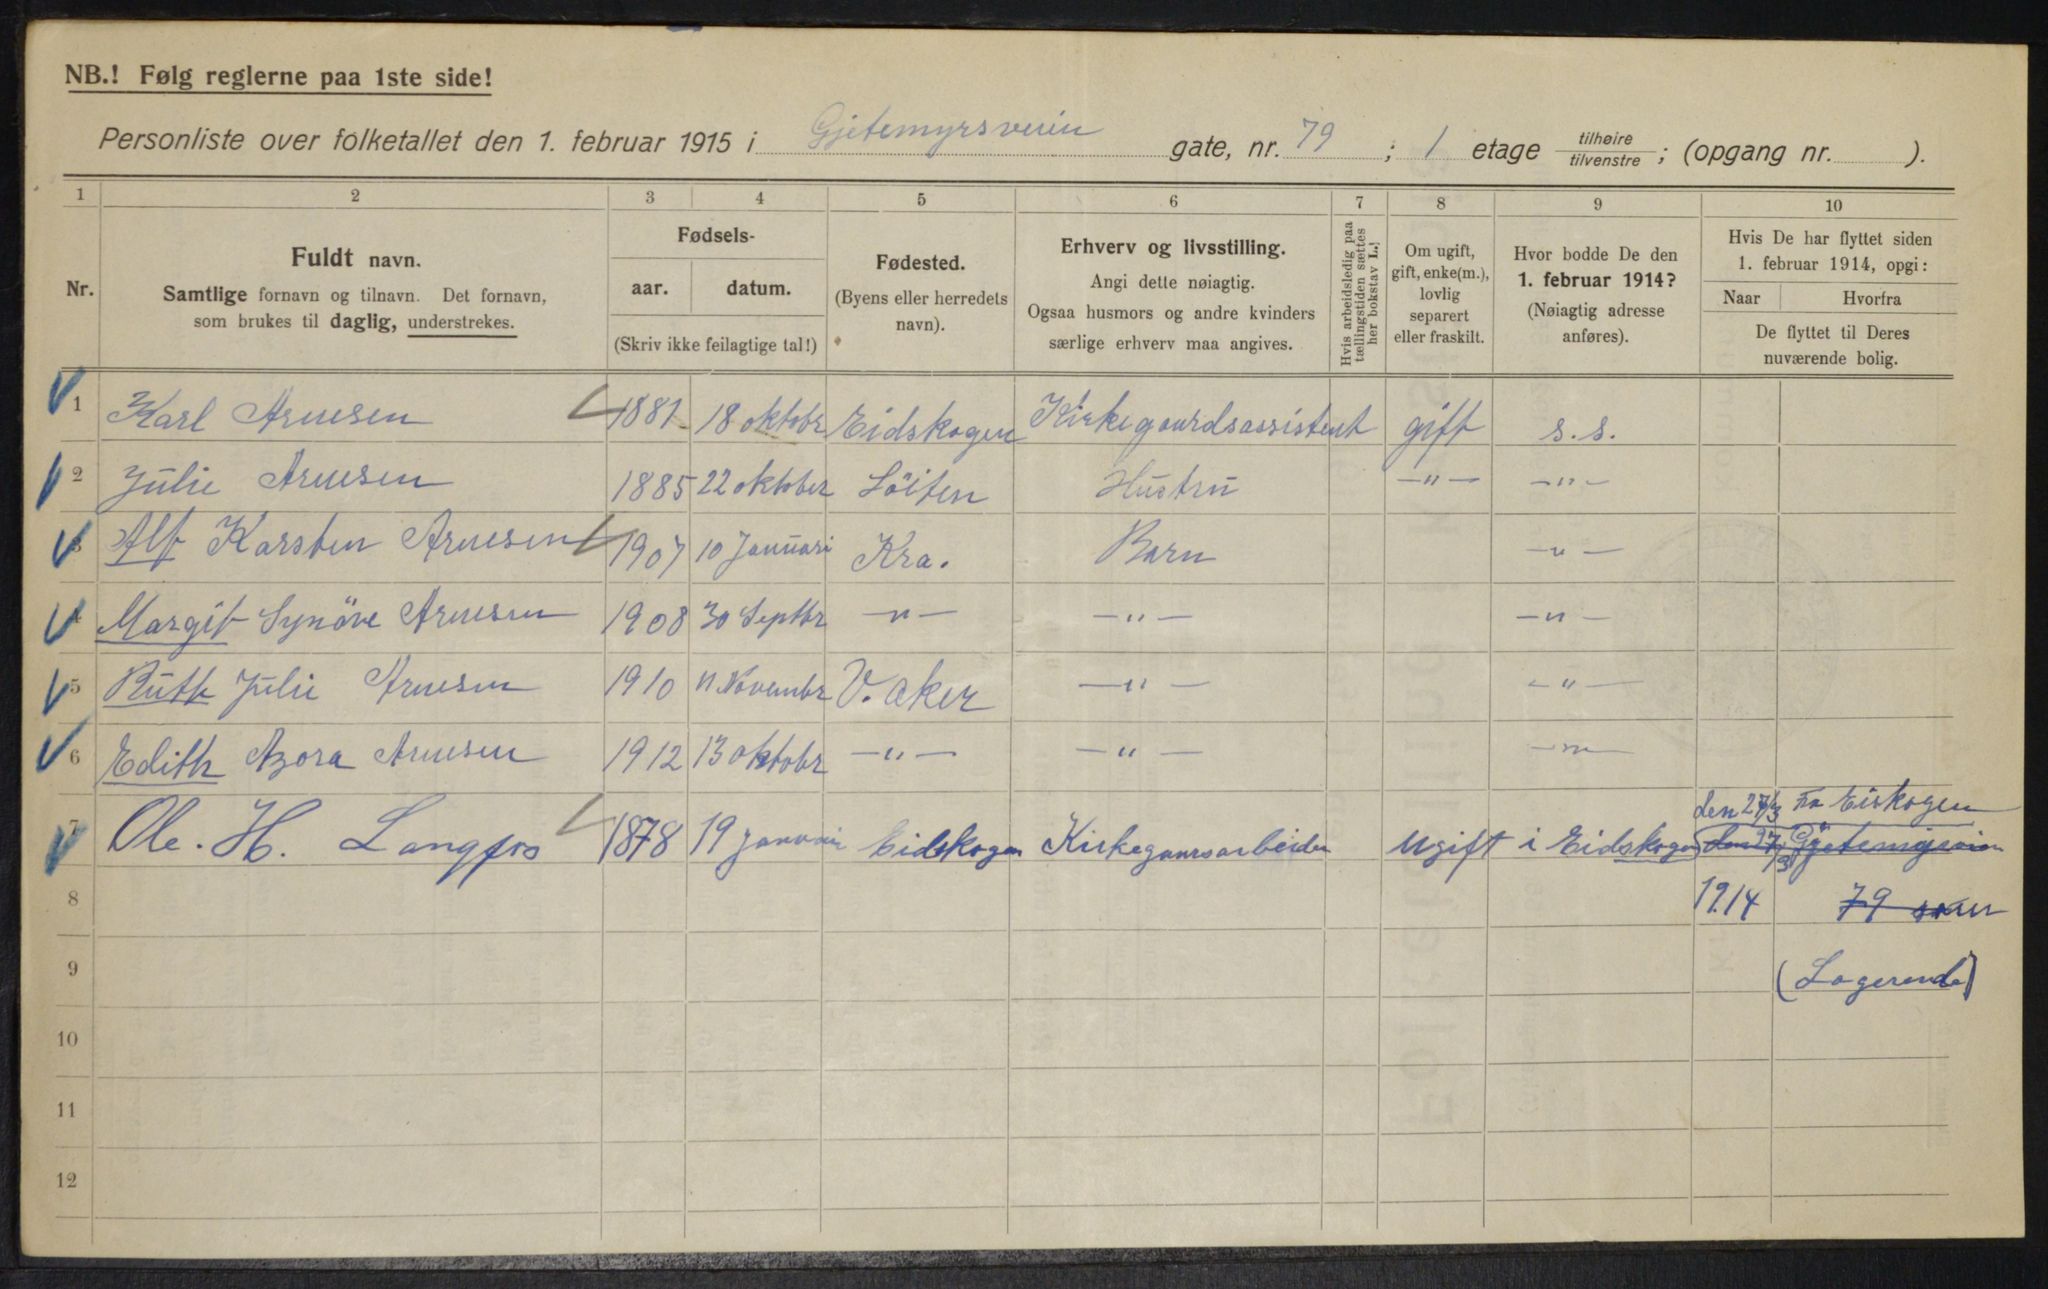 NB.! Følg reglerne paa 1ste side!
Personliste over folketallet den 1. februar 1915 i Gjetemyrsveien gate, nr. 79 ; 1 etage tilhøire / tilvenstre ; (opgang nr. ).
1 2 3 4 5 6 7 8 9 10
Nr.
Fuldt navn.
Samtlige fornavn og tilnavn. Det fornavn,
som brukes til daglig, understrekes.
Fødsels-
aar. datum.
(Skriv ikke feilagtige tal!)
Fødested.
(Byens eller herredets
navn).
Erhverv og livsstilling.
Angi dette nøiagtig.
Ogsaa husmors og andre kvinders
særlige erhverv maa angives.
Hvis arbeidsledig paa
tællingstiden sættes
her bokstav L.!
Om ugift,
gift, enke(m.),
lovlig
separert
eller fraskilt.
Hvor bodde De den
1. februar 1914?
(Nøiagtig adresse
anføres).
Hvis De har flyttet siden
1. februar 1914, opgi:
Naar Hvorfra
De flyttet til Deres
nuværende bolig.
1 Karl Arnesen 1881 18 oktobr Eidskogen Kirkegaardsassistent gift s.s.
2 Julie Arnesen 1885 22 oktober Löiten Hustru —"— —"—
3 Alf Karsten Arnesen 1907 10 Januari Kra. Barn —"—
4 Margit Synöve Arnesen 1908 30 Septbr —"— —"— —"—
5 Ruth Julie Arnesen 1910 11 Novembr V. aker —"— —"—
6 Edith Azora Arnesen 1912 13 oktobr —"— —"— —"—
den 27/3 Fra Eiskogen
7 Ole. H. Langfos 1878 19 Januari Eidskogen Kirkegaursarbeider Ugift i Eidskogen den 27/3 Gjetemigsveien
8 1914 79
9 (Logerende)
10
11
12